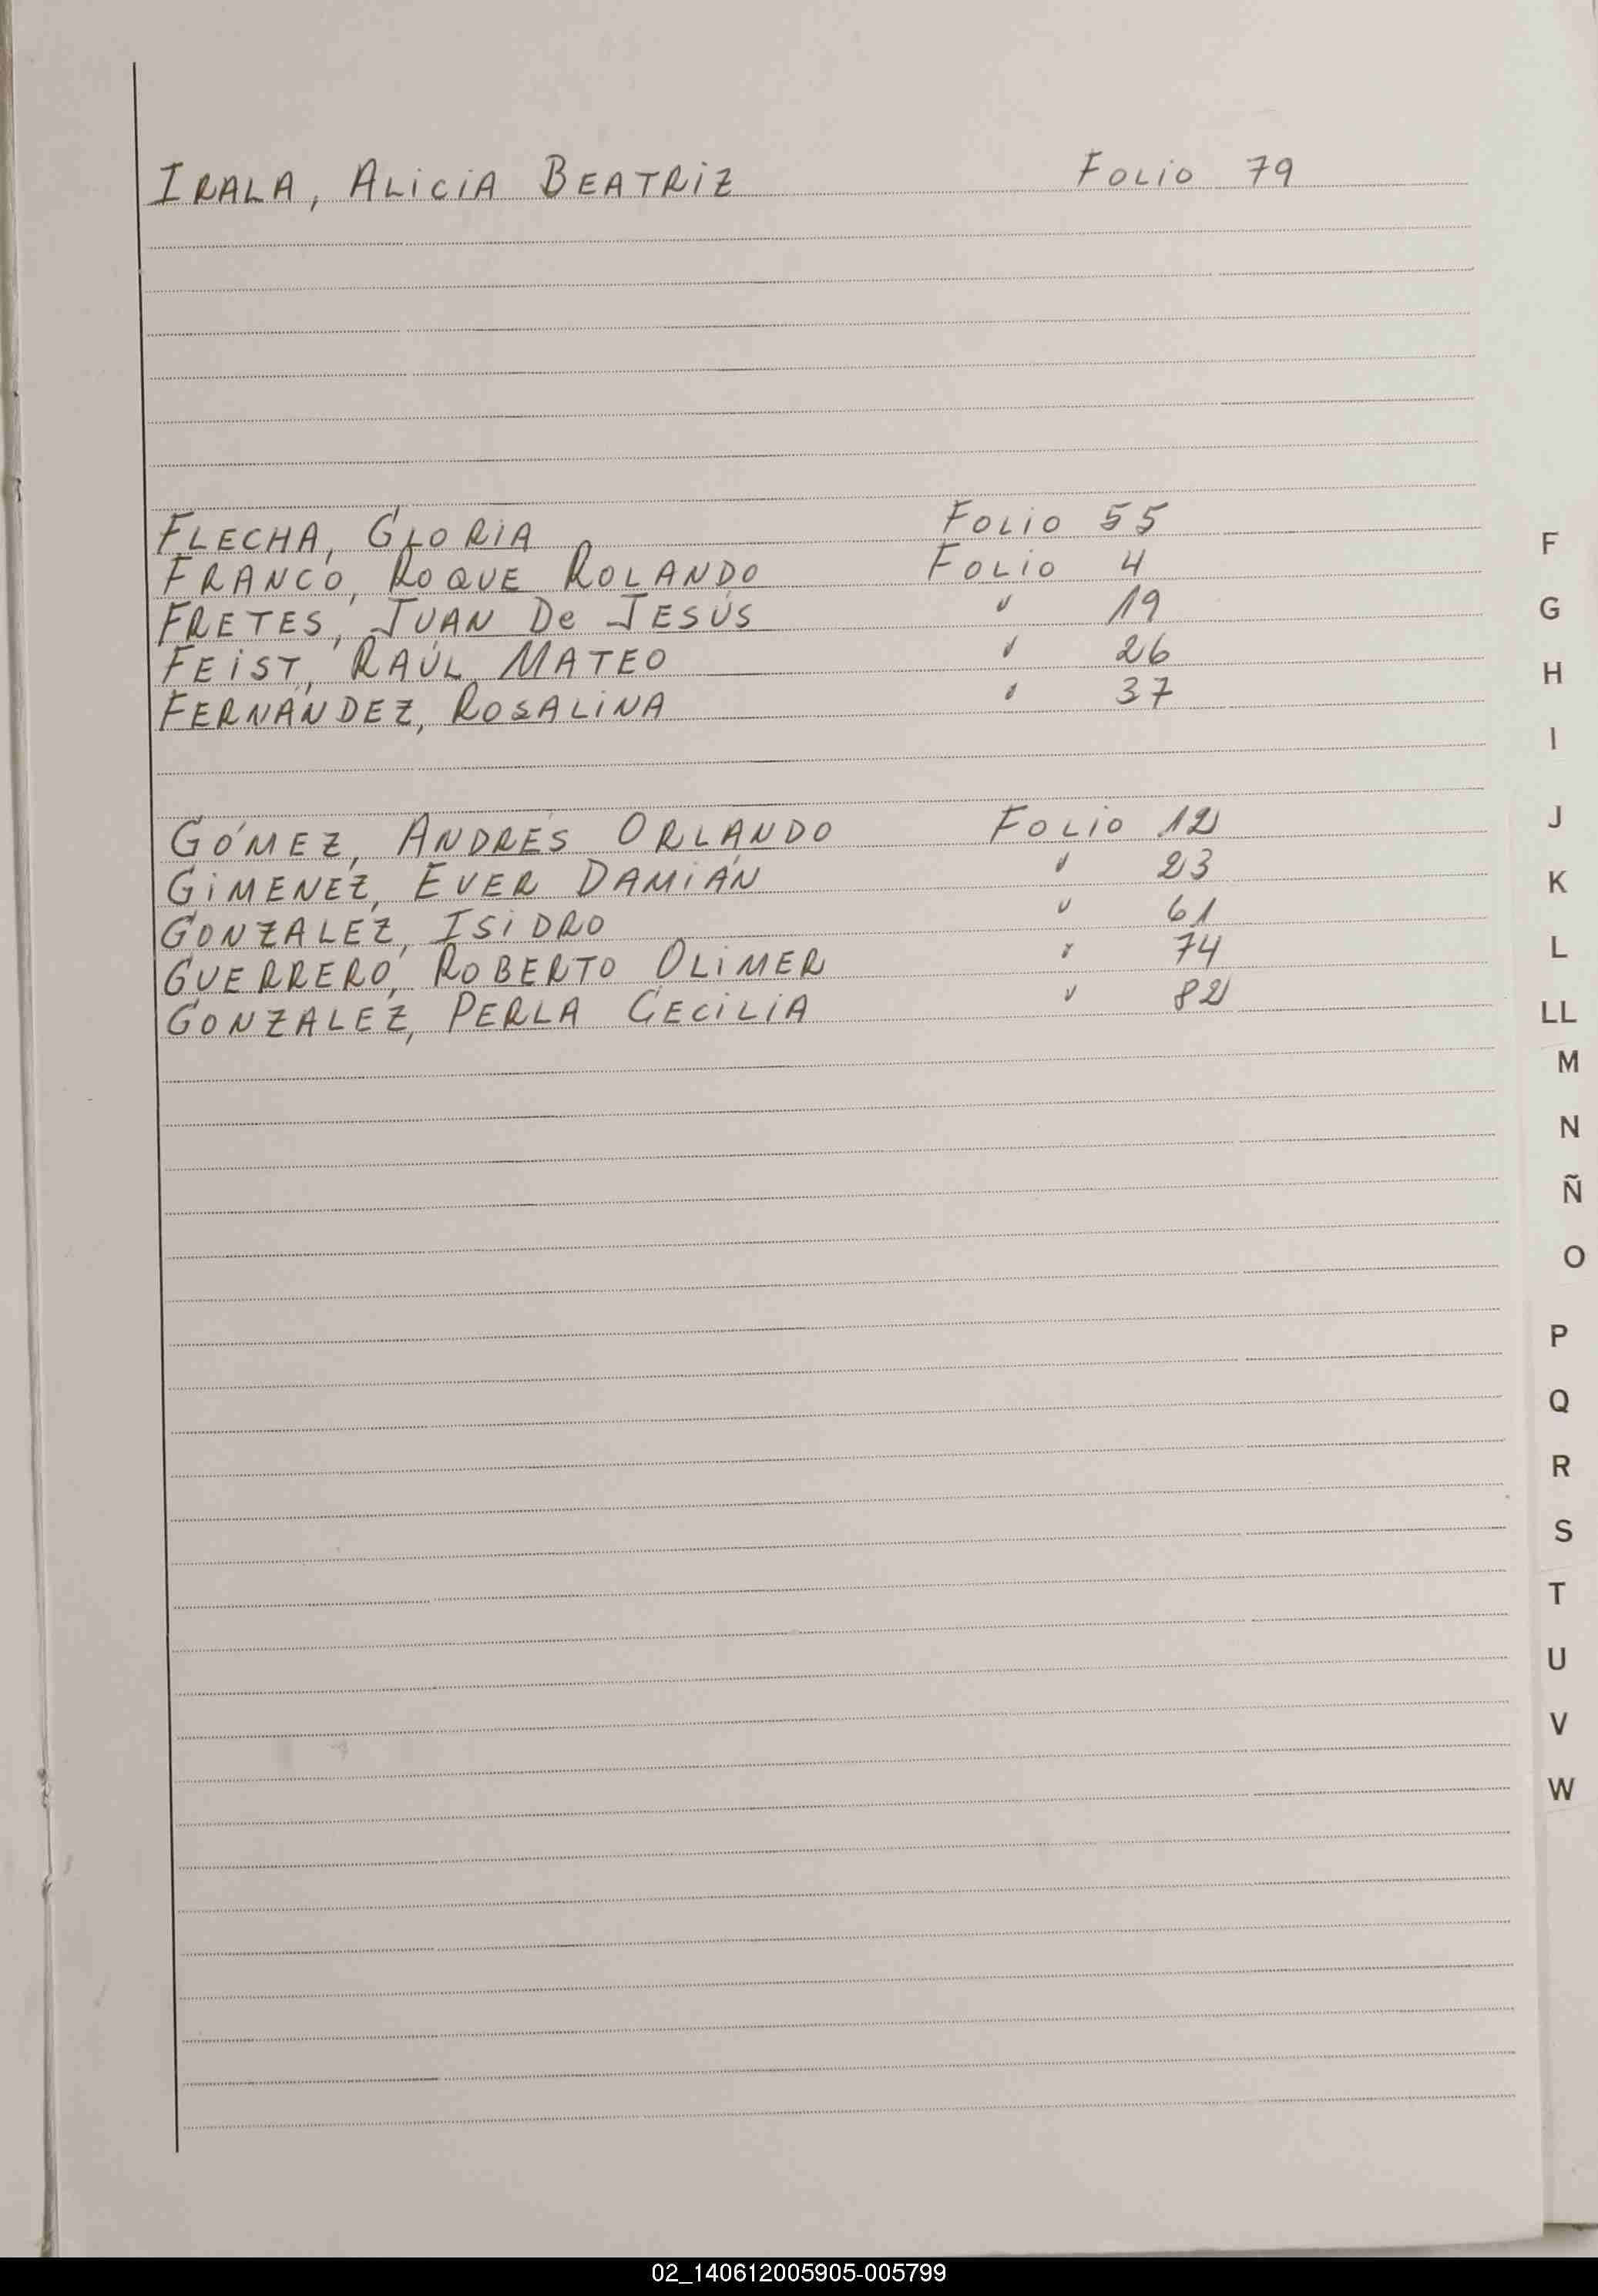 IRALA, ALiCiA BEATRiZ Folio 79
FLECHA, GLORiA Folio 55
FRANCO, ROQUE ROLANDO Folio 4
FRETES, JUAN De JESÚS " 19
FEiST, RAÚL MATEO " 26
FERNÁNDEZ, ROSALiNA " 37
GÓMEZ, ANDRÉS ORLANDO Folio 12
GiMENEZ, EVER DAMIÁN " 23
GONZALEZ, ISiDRO " 61
GUERRERO, ROBERTO OLiMER " 74
GONZALEZ, PERLA CECiLiA " 82
F
G
H
I
J
K
L
LL
M
N
Ñ
O
P
Q
R
S
T
U
V
W
02_140612005905-005799